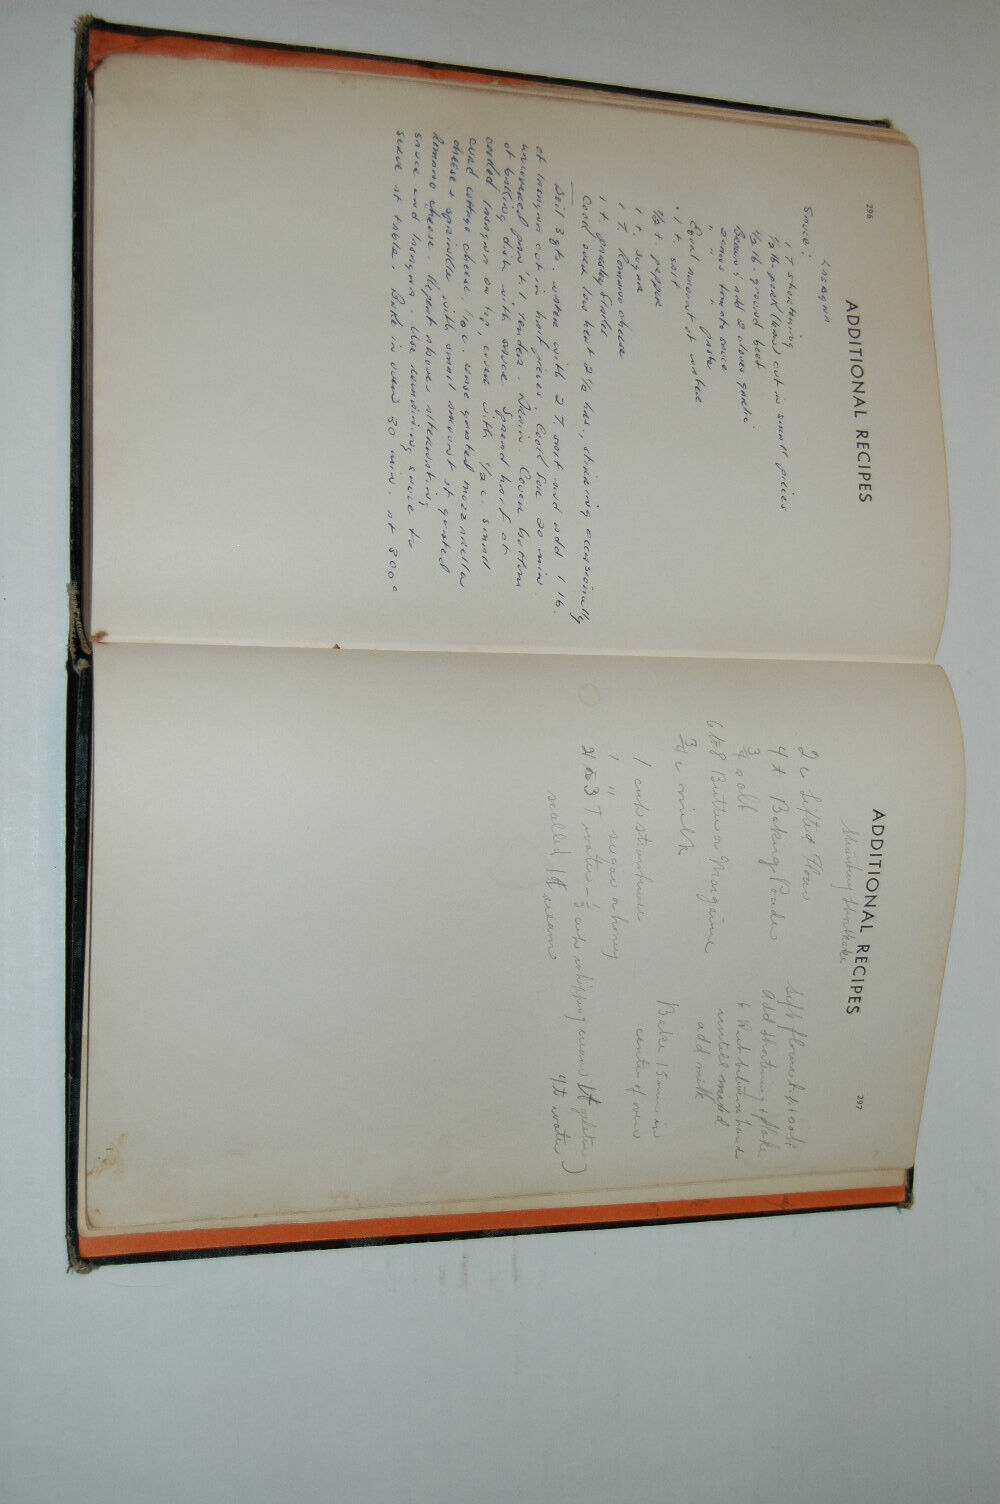 296
ADDITIONAL RECIPES
Lasagna
Sauce:
1 T shortening
½ lb. pork (lean) cut in small pieces
½ lb. ground beef
Brown & add 2 cloves garlic
2 cans tomato sauce
" " " paste
Equal amount of water
1 t. salt
½ t. pepper
1 t. sugar
1 T. Romano cheese
1 t. parsley flakes
Cook over low heat 2½ hrs., stirring occasionally
Boil 3 qts. water with 2 T. salt and add 1 lb.
of lasagna cut in half pieces. Cook for 20 min.
uncovered pan til tender. Drain. Cover bottom
of baking dish with sauce. Spread half of
cooked lasagna on top, cover with ½ c. small
curd cottage cheese, ½ c. grated mozzarella
cheese & sprinkle with small amount of grated
Romano cheese. Repeat above alternating
sauce and lasagna. Use remaining sauce to
serve at table. Bake in oven 30 min. at 300°
ADDITIONAL RECIPES
297
Strawberry Shortcake
2 c Sifted Flour
4 t Baking Powder
¾ salt
6 to 8 Butter or Margarine
¾ c milk
Sift flour b.p. & salt
add shortening & flake
& Rub between hands
untill mealed
add milk
Bake 15 min in
center of oven
1 cup strawberries
1 " sugar or honey
2 to 3 T water - ½ cup whipping cream (1 t gelatin
scalled 1 t cream 4 t water)